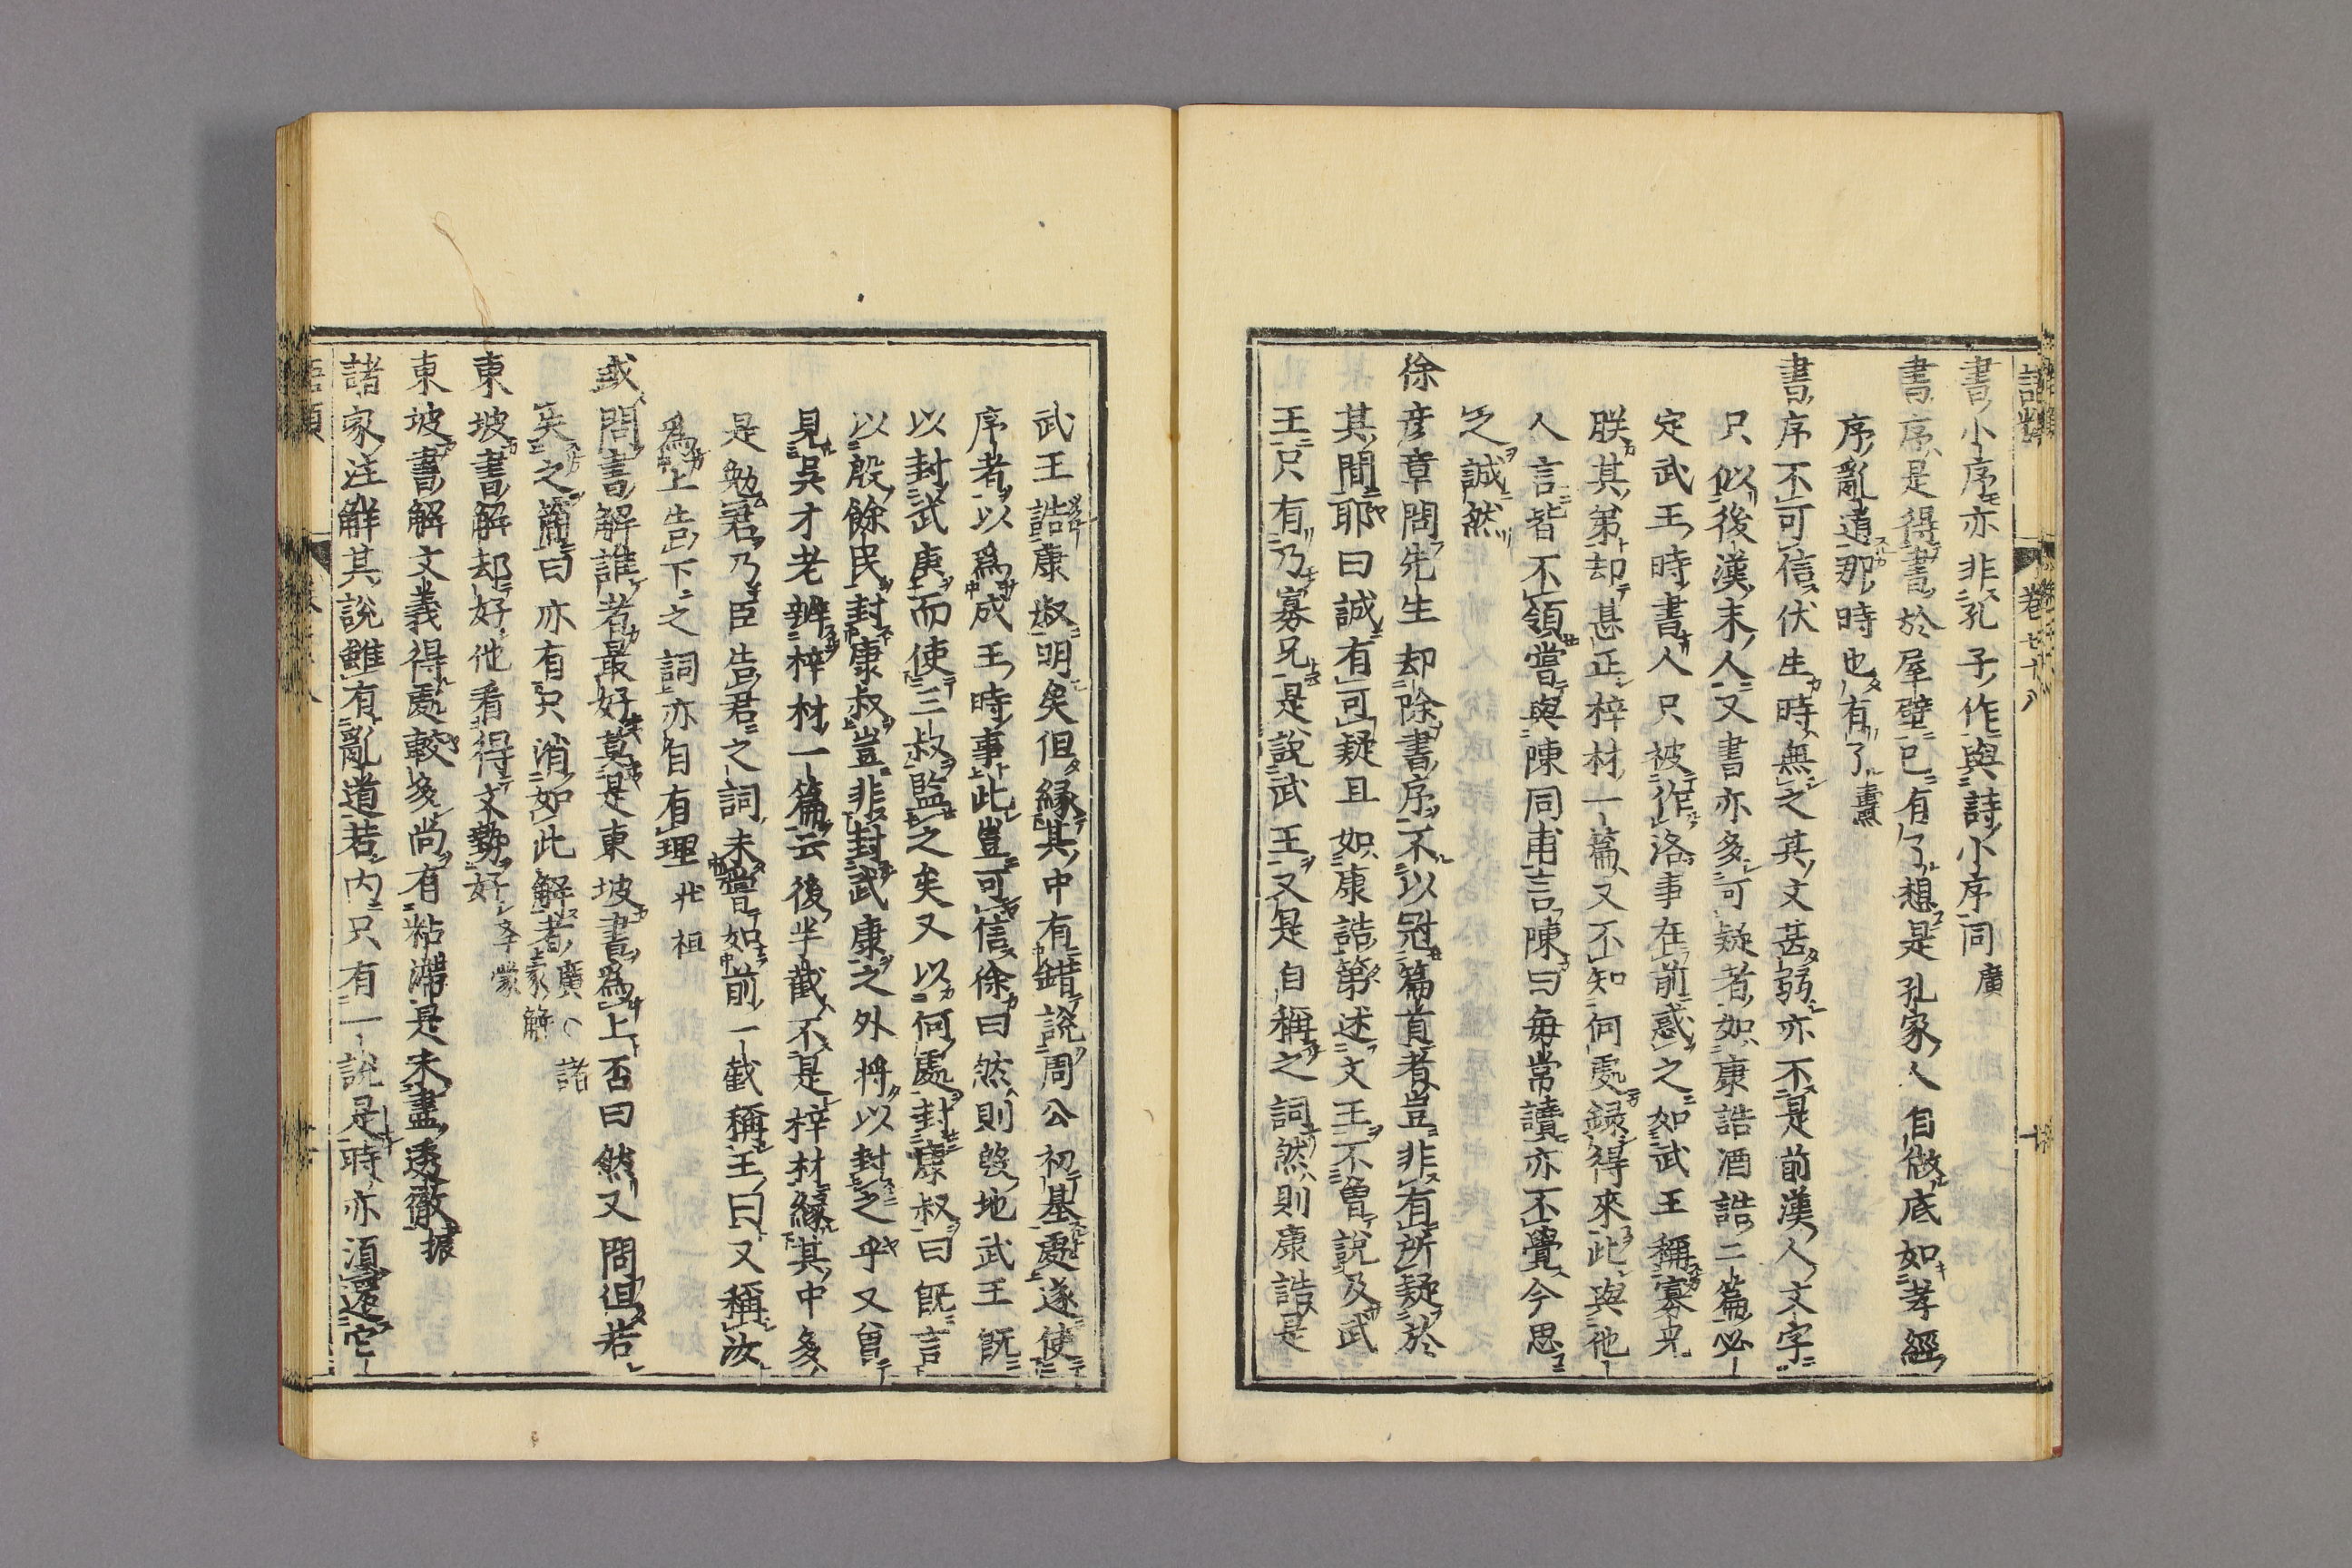 書小序亦非孔子作與詩小序同 廣
書序是得書於屋壁已有了想是孔家人自做底如孝經
序亂道那時也有了 燾
書序不可信伏生時無之其文甚弱亦不是前漢人文字
只似後漢末人又書亦多可疑者如康誥酒誥二篇必
定武王時書人只被作洛事在前惑之如武王稱寡兄
朕其弟却甚正梓材一篇又不知何處錄得來此與他
人言皆不領嘗與陳同甫言陳曰每常讀亦不覺今思
之誠然
徐彦章問先生却除書序不以冠篇首者豈非有所疑於
其間耶曰誠有可疑且如康誥第述文王不曽說及武
王只有乃寡兄是說武王又是自稱之詞然則康誥是
武王誥康叔明矣但縁其中有錯說周公初基處遂使
序者以爲成王時事此豈可信徐曰然則殷地武王既
以封武庚而使三叔監之矣又以何處封康叔曰既言
以殷餘民封康叔豈非封武庚之外將以封之乎又曽
見吳才老辨梓材一篇云後半截不是梓材縁其中多
是勉君乃臣告君之詞未嘗如前一截稱王曰又稱汝
爲上告下之詞亦自有理 壯祖
或問書解誰者最好莫是東坡書爲上否曰然又問但若
矣之簡曰亦有只消如此解者 廣 ○諸家解
東坡書解却好他看得文勢好 李蒙
東坡書解文義得處較多尚有粘滯是未盡透徹 振
諸家注解其說雖有亂道若內只有一說是時亦須還它